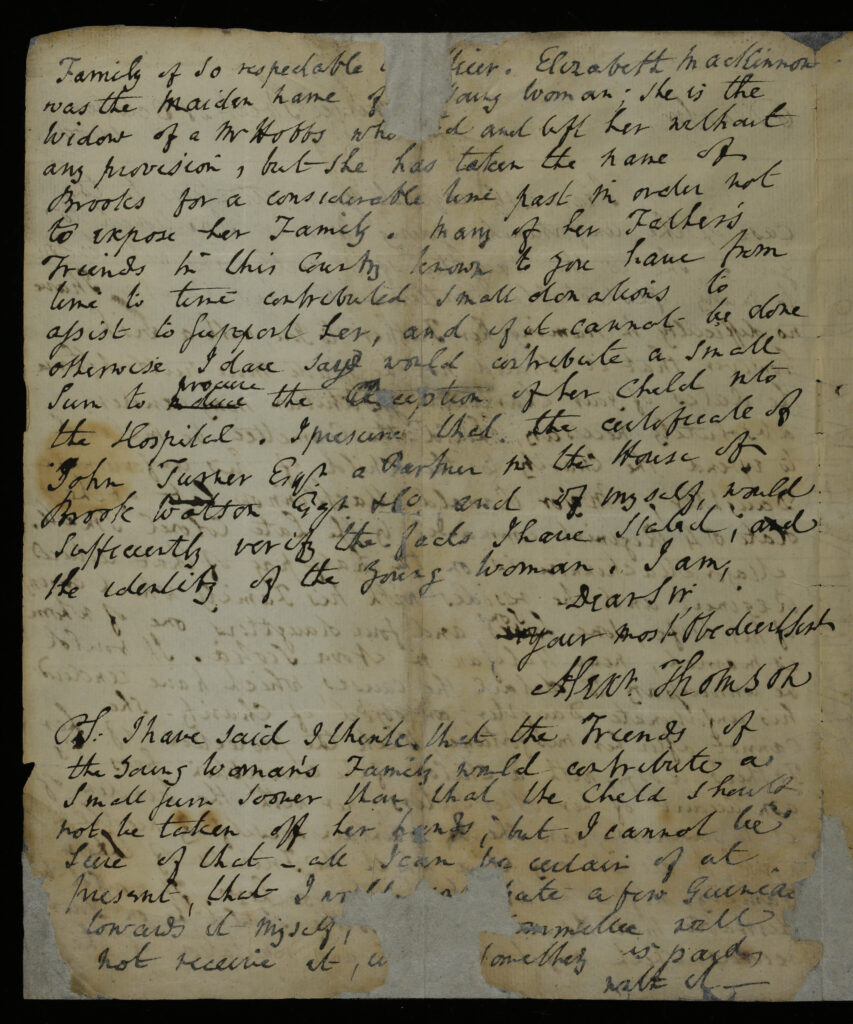 Family of so respectable fficer. Elizabeth Mackinnon
was the Maiden name of Young Woman; She is the
Widow of a Mr Hobbs who d and left her without
any provision, but she has taken the name of
Brooks for a considerable time past in order not
to expose her Family. Many of her Father's
Friends in this Country known to you have from
time to time contributed small donations to
assist to support her, and if it cannot be done
otherwise I dare say would contribute a small
Sum to procure the Reception of her Child into
the Hospital. I presume that the certificate of
John Turner Esqr. a Partner in the House of
Brook Watson Esqr & Co and of myself, would
sufficiently verify the facts I have stated; and
the identity of the Young Woman. I am,
Dear Sir,
your most Obedient Sert
Alexr. Thomson
P.S. I have said I think that the Friends of
the Young Woman's Family would contribute a
small sum sooner than that the Child should
not be taken off her hands; but I cannot be
sure of that - all I can be certain of at
present, that I a few Guineas
towards it myself, ommittee will
not receive it, something is paid
with it —